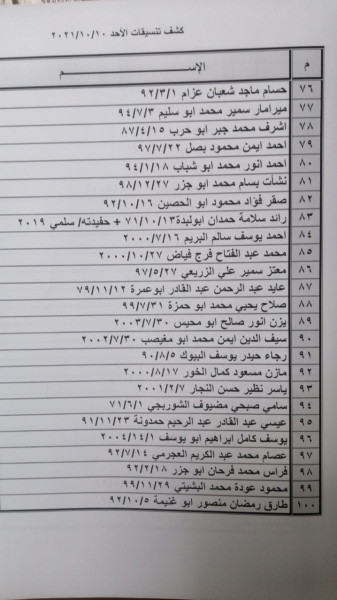 كشف تنسيقات الأحد ٢٠٢١/١٠/١٠
م الإســـــم
٧٦ حسام ماجد شعبان عزام ٩٢/٣/١
٧٧ ميرامار سمير محمد ابو سليم ٩٤/٧/٣
٧٨ اشرف محمد جبر ابو حرب ٨٧/٤/١٥
٧٩ احمد ايمن محمود بصل ٩٧/٧/٢٢
٨٠ احمد انور محمد ابو شباب ٩٤/١/١٨
٨١ نشأت بسام محمد ابو جزر ٩٨/١٢/٢٧
٨٢ صقر فؤاد محمود ابو الحصين ٩٢/١٠/١٦
٨٣ رائد سلامة حمدان ابولبدة ٧١/١٠/١٣ + حفيدته/ سلمي ٢٠١٩
٨٤ احمد يوسف سالم البريم ٢٠٠٠/٧/١٦
٨٥ محمد عبد الفتاح فرج فياض ٢٠٠٠/١٠/٢٧
٨٦ معتز سمير علي الزريعي ٩٧/٥/٢٧
٨٧ عايد عبد الرحمن عبد القادر ابوعمرة ٧٩/١١/١٢
٨٨ صلاح يحيي محمد ابو حمزة ٩٩/٧/٣١
٨٩ يزن انور صالح ابو محيس ٢٠٠٣/٧/٣٠
٩٠ سيف الدين ايمن محمد ابو مغيصب ٢٠٠٢/٧/٣٠
٩١ رجاء حيدر يوسف البيوك ٩٠/٨/٥
٩٢ مازن مسعود كمال الخور ٢٠٠٠/٨/١٧
٩٣ ياسر نظير حسن النجار ٢٠٠١/٢/٧
٩٤ سامي صبحي مضيوف الشوربجي ٧١/٦/١
٩٥ عيسي عبد القادر عبد الرحيم حمدونة ٩١/١١/٢٣
٩٦ يوسف كامل ابراهيم ابو يوسف ٢٠٠٤/١٤/١
٩٧ عصام محمد عبد الكريم العجرمي ٩٢/٧/١٤
٩٨ فراس محمد فرحان ابو جزر ٩٢/٢/١٨
٩٩ محمود عودة محمد البشيتي ٩٩/١١/٢٩
١٠٠ طارق رمضان منصور ابو غنيمة ٩٢/١٠/٥